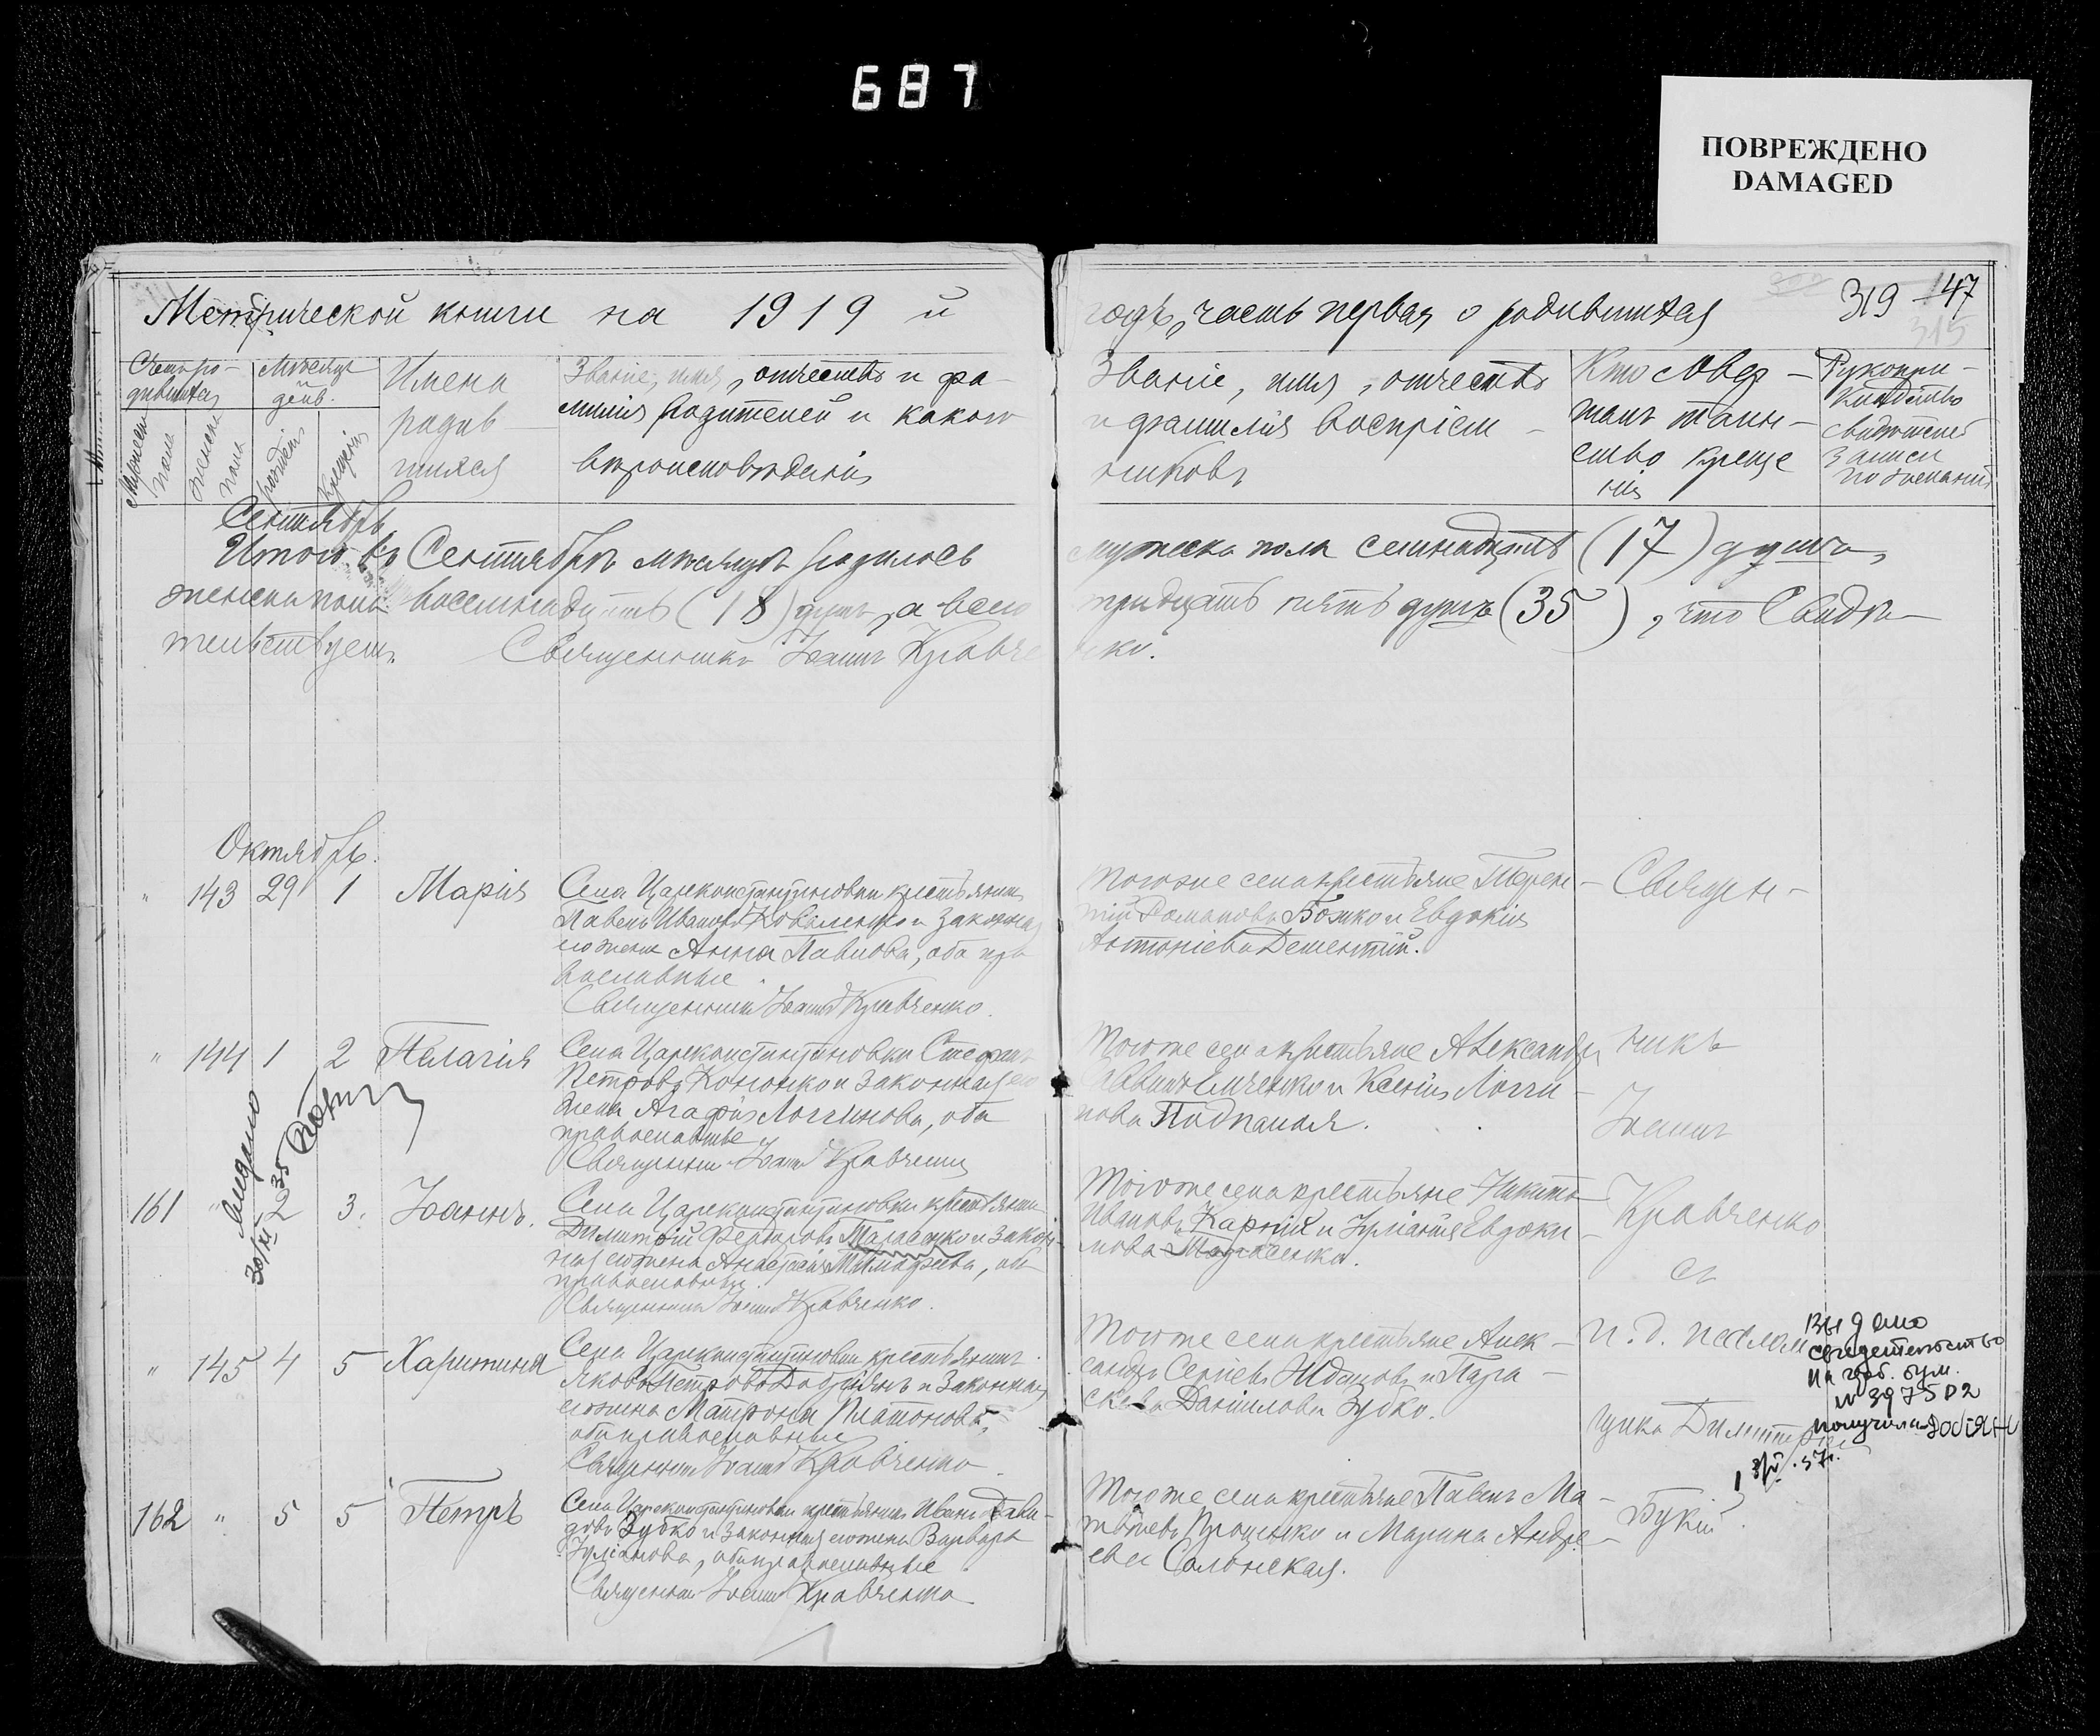 687
ПОВРЕЖДЕНО
DAMAGED
Метрической книги на 1919 й
годъ, часть первая о родившихся
319
47
315
Счетъ ро-
дившихся
Мѣсяцъ
день.
Имена
родив
шихся
Мужеск
пола
женск
пола
рожденія
крещенія
Званіе, имя, отчество и фа-
милія родителей и какого
вѣроисповѣданія
Званіе, имя, отчество
и фамилія воспріем-
никовъ
Кто совер-
шалъ таин-
ство креще
нія
Рукопри-
кладство
свидѣтелей
записи
по желанію
Сентябрь
Итого въ Сентябрѣ мѣсяцѣ родилось
мужеска пола семнадцать (17) душъ,
женска пола восемнадцать (18) душъ, а всего
тридцать пять душъ (35), что Свидѣ-
тельствуетъ.
Священникъ Іоаннъ Кравче
нко.
Октябрь.
" 143 29 1 Марія
Села Цареконстантиновки крестьянинъ
Павелъ Ивановъ Коваленко и законная
его жена Анна Павлова, оба пра
вославные
Священникъ Іоаннъ Кравченко.
Того же села крестьяне Терен-
тій Романовъ Божко и Евдокія
Антоніева Дементій.
Священ-
" 144 1 2 Пелагія
Села Цареконстантиновки Стефанъ
Петровъ Кононко и законная его
жена Агафія Логинова, оба
православные
Священникъ Іоаннъ Кравченко
Того же села крестьяне Александръ
Емченко и Ксенія Логги-
нова Подпалая.
никъ
Іоаннъ
выдано
30/XI 35
161 " 2 3. Іоаннъ.
Села Цареконстантиновки крестьянинъ
Димитрій Федоровъ Тарасенко и закон-
ная его жена Анастасія Тимофеева, оба
православные.
Священникъ Іоаннъ Кравченко.
Того же села крестьяне Никита
Ивановъ Карпій и Іуліанія Евдоки-
мова Тарасенко.
Кравченко
съ
" 145 4 5 Харитина
Села Цареконстантиновки крестьянинъ
Яковъ Петровъ Добріянъ и законная
его жена Матрона Платонова,
оба православные
Священникъ Іоаннъ Кравченко
Того же села крестьяне Алек-
сандръ Сергіевъ Ждановъ и Пара-
скева Даніилова Зубко.
и. д. псалом
щика Димитрій
выдано
свидетельство
на герб. бум.
№ 397502
получила
57г.
162 " 5 5 Петръ
Села Цареконстантиновки крестьянинъ Иванъ Дави-
довъ Зубко и законная его жена Варвара
Іуліанова, оба православные
Священникъ Іоаннъ Кравченко
Того же села крестьяне Павелъ Ма-
твѣевъ Проценко и Марина Андре-
ева Солонская.
Букій